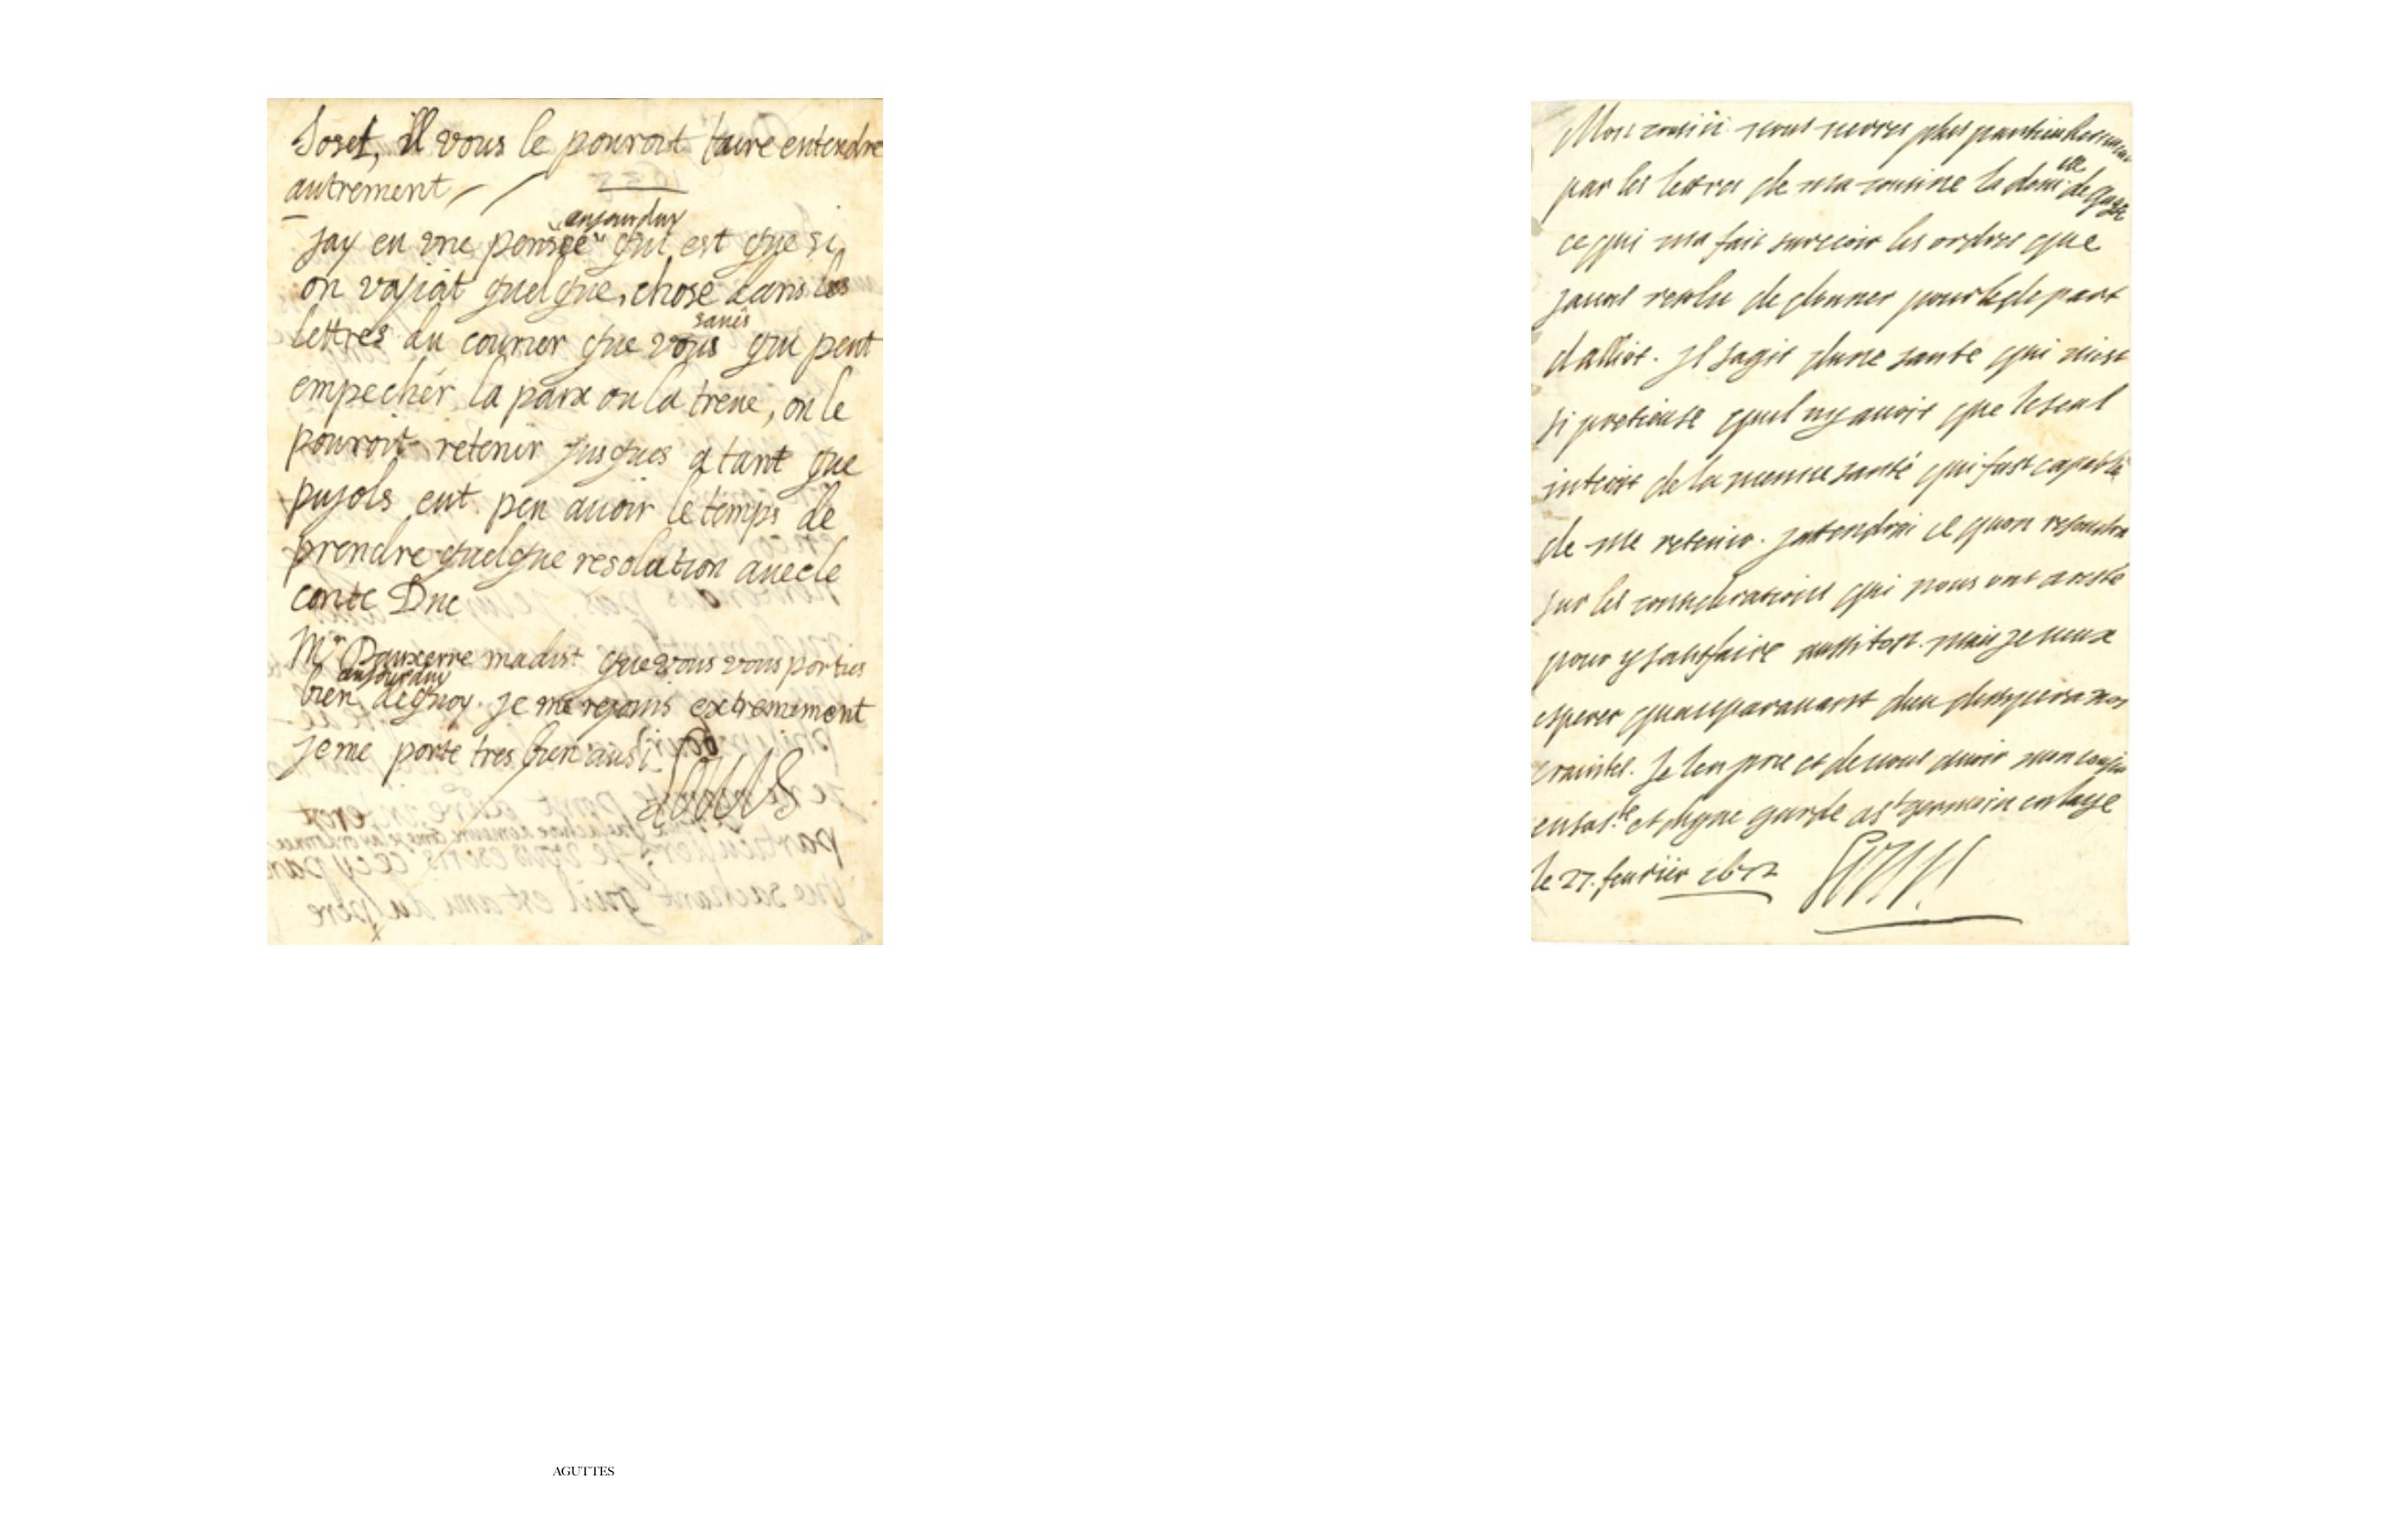 Josef, il vous le pouroit faire entendre
autrement
aujourduy
Jay eu une pensée qui est que si
on voyiat quelque chose dans les
sanés
lettres du courier que vous qui peut
empecher la paix ou la treue, on le
pouroit retenir jusques a tant que
pujols eut peu avoir le temps de
prendre quelque resolution avec le
conte Duc
Mr Dauxerre ma dist que vous vous porties
aujourduy
bien de quoy je me rejouis extremement
je me porte tres bien aussi
Louis
Mon cousin vous verres plus particulierement
par les lettres de ma cousine la dem.elle de Guise
ce qui ma fait surceoir les ordres que
javois resolu de donner pour le depart
dalliot. Il sagit dune sante qui mest
si pretieuse quil ny avoit que le seul
interest de la mesme santé qui fust capable
de me retenir. Jattendrai ce quon resoudra
sur les considerations qui nous ont aresté
pour y satisfaire aussitost. mais je veux
esperer quauparavant dieu dissipera nos
craintes. Je len prie et de vous avoir mon cousin
en sa s.te et digne garde a st germain en laye
le 27. fevrier 1672 Louis
AGUTTES